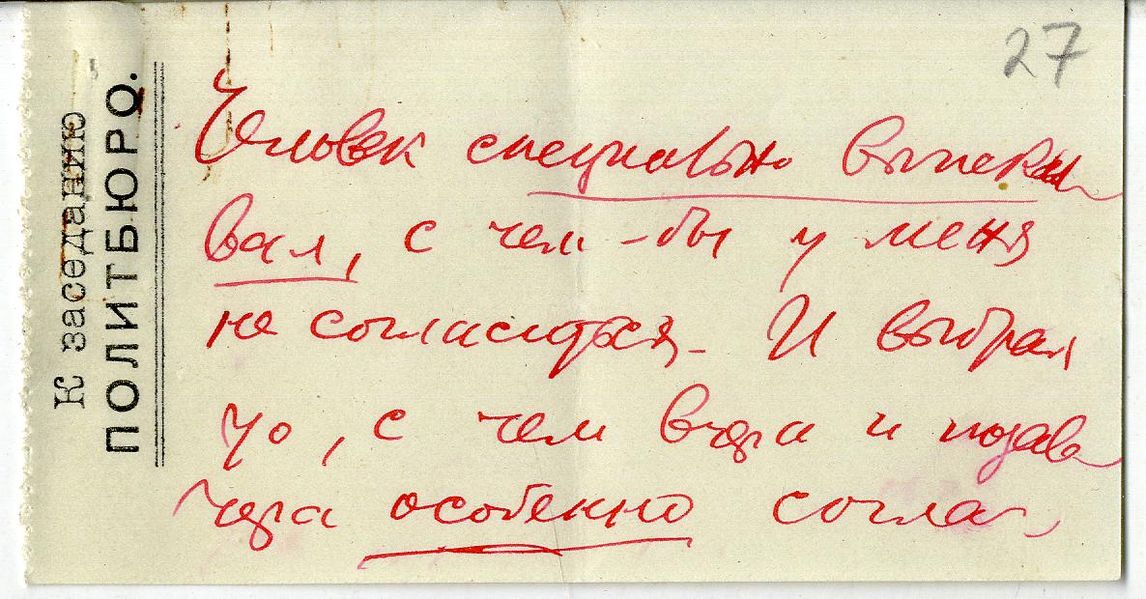 27
К заседанию
ПОЛИТБЮРО.
Человек специально выиски
вал, с чем-бы у меня
не согласиться. И выбрал
то, с чем вчера и позав
чера особенно согла